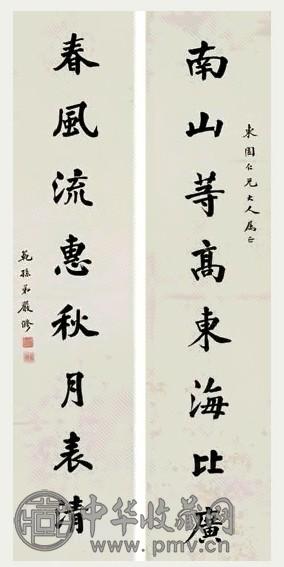 東園仁兄大人屬正
南山等高東海比廣
春風流惠秋月表清
範孫弟嚴修
中华收藏网
www.pmv.cn